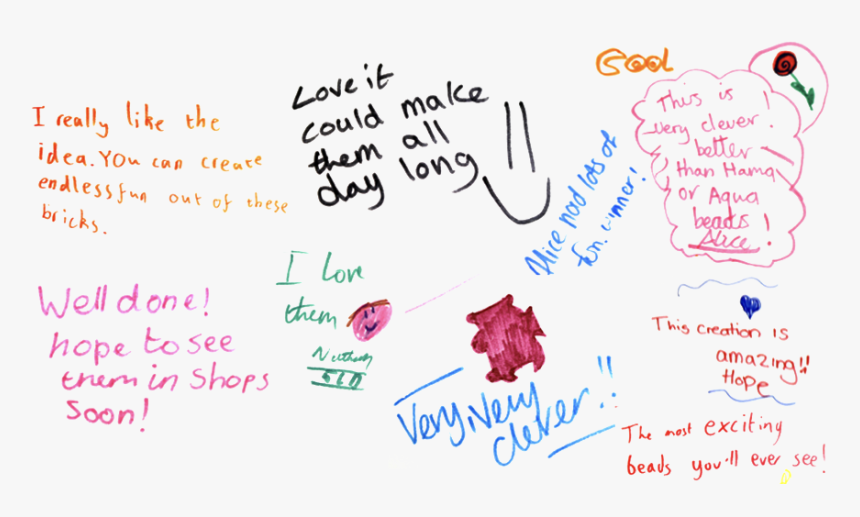 I really like the
idea. You can create
endless fun out of these
bricks.
Love it
could make
them all
day long
Cool
This is
very clever!
better
than Hama
or Aqua
beads!
Alice
Nice and lots of
fun. winner!
Well done!
hope to see
them in shops
soon!
I love
them
Very, Very
clever!!
This creation is
amazing!!
Hope
The most exciting
beads you'll ever see!